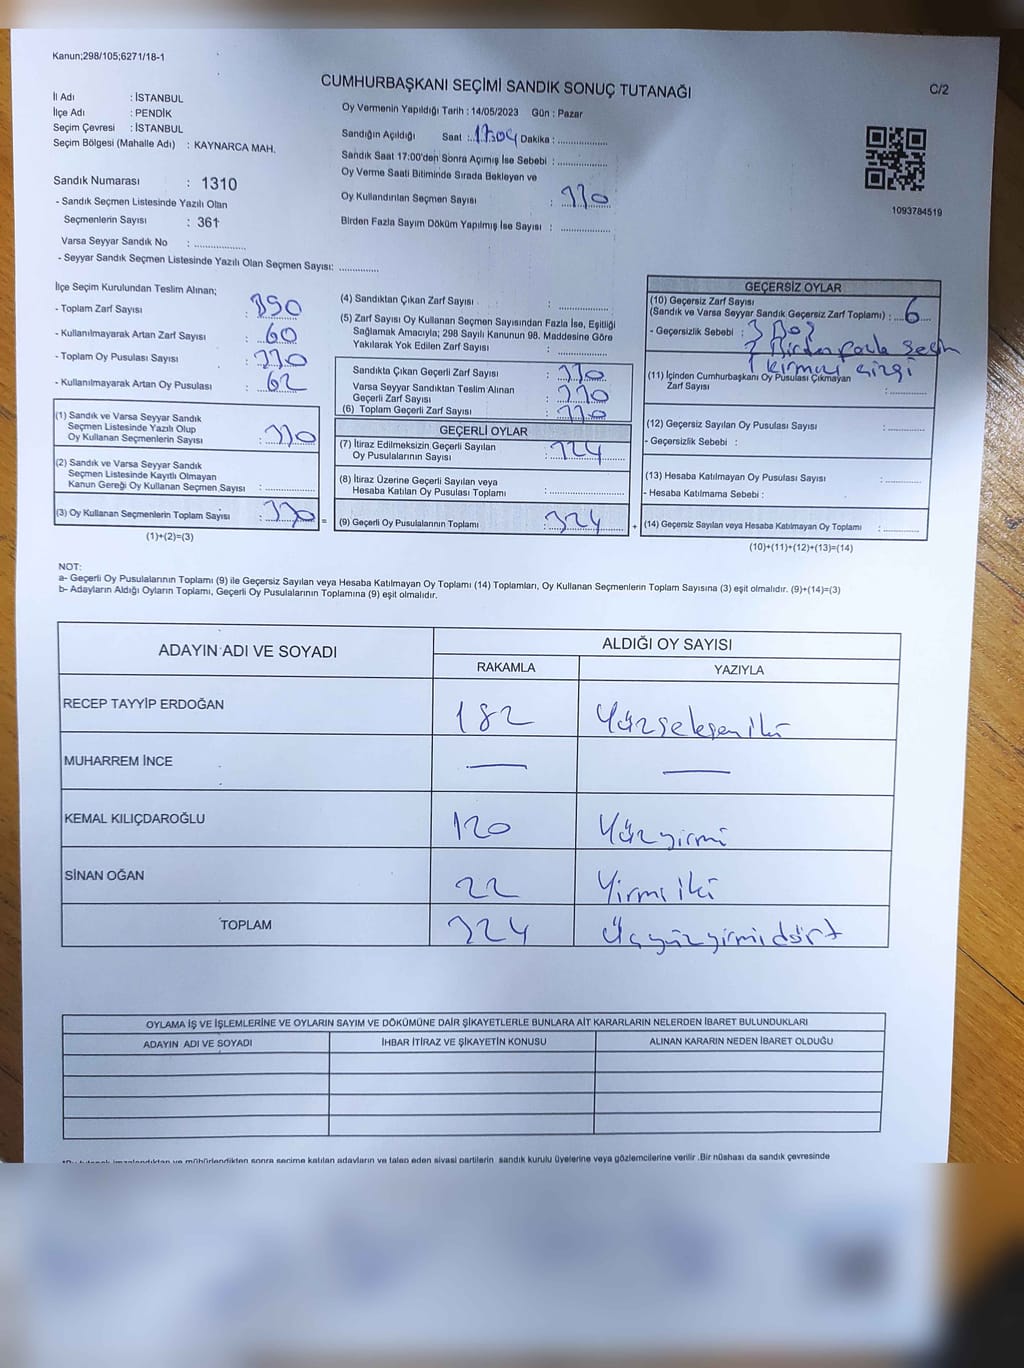 Kanun;298/105;6271/18-1
CUMHURBAŞKANI SEÇİMİ SANDIK SONUÇ TUTANAĞI
C/2
İl Adı : İSTANBUL
İlçe Adı : PENDİK
Seçim Çevresi : İSTANBUL
Seçim Bölgesi (Mahalle Adı) : KAYNARCA MAH.
Oy Vermenin Yapıldığı Tarih : 14/05/2023 Gün : Pazar
Sandığın Açıldığı Saat : 1704 Dakika : ..............
Sandık Saat 17:00'den Sonra Açımış İse Sebebi : ..............
Oy Verme Saati Bitiminde Sırada Bekleyen ve
Oy Kullandırılan Seçmen Sayısı : 330
Birden Fazla Sayım Döküm Yapılmış İse Sayısı : ..............
1093784519
Sandık Numarası : 1310
- Sandık Seçmen Listesinde Yazılı Olan
Seçmenlerin Sayısı : 361
Varsa Seyyar Sandık No : ..............
- Seyyar Sandık Seçmen Listesinde Yazılı Olan Seçmen Sayısı: ............
İlçe Seçim Kurulundan Teslim Alınan;
- Toplam Zarf Sayısı : 390
- Kullanılmayarak Artan Zarf Sayısı : 60
- Toplam Oy Pusulası Sayısı :
- Kullanılmayarak Artan Oy Pusulası : 62
(1) Sandık ve Varsa Seyyar Sandık
Seçmen Listesinde Yazılı Olup
Oy Kullanan Seçmenlerin Sayısı : 330
(2) Sandık ve Varsa Seyyar Sandık
Seçmen Listesinde Kayıtlı Olmayan
Kanun Gereği Oy Kullanan Seçmen Sayısı : ..............
(3) Oy Kullanan Seçmenlerin Toplam Sayısı : 330 =
(1)+(2)=(3)
(4) Sandıktan Çıkan Zarf Sayısı : ..............
(5) Zarf Sayısı Oy Kullanan Seçmen Sayısından Fazla İse, Eşitliği
Sağlamak Amacıyla; 298 Sayılı Kanunun 98. Maddesine Göre
Yakılarak Yok Edilen Zarf Sayısı : ..............
Sandıkta Çıkan Geçerli Zarf Sayısı : 330
Varsa Seyyar Sandıktan Teslim Alınan
Geçerli Zarf Sayısı : 330
(6) Toplam Geçerli Zarf Sayısı : 330
GEÇERLİ OYLAR
(7) İtiraz Edilmeksizin Geçerli Sayılan
Oy Pusulalarının Sayısı : 324
(8) İtiraz Üzerine Geçerli Sayılan veya
Hesaba Katılan Oy Pusulası Toplamı : ..............
(9) Geçerli Oy Pusulalarının Toplamı : 324 +
GEÇERSİZ OYLAR
(10) Geçersiz Zarf Sayısı
(Sandık ve Varsa Seyyar Sandık Geçersiz Zarf Toplamı) : 6
- Geçersizlik Sebebi : 3 Boş
2 Birden fazla seçim
1 kırmızı çizgi
(11) İçinden Cumhurbaşkanı Oy Pusulası Çıkmayan
Zarf Sayısı : ..............
(12) Geçersiz Sayılan Oy Pusulası Sayısı : ..............
- Geçersizlik Sebebi :
(13) Hesaba Katılmayan Oy Pusulası Sayısı : ..............
- Hesaba Katılmama Sebebi :
(14) Geçersiz Sayılan veya Hesaba Katılmayan Oy Toplamı : ..............
(10)+(11)+(12)+(13)=(14)
NOT:
a- Geçerli Oy Pusulalarının Toplamı (9) ile Geçersiz Sayılan veya Hesaba Katılmayan Oy Toplamı (14) Toplamları, Oy Kullanan Seçmenlerin Toplam Sayısına (3) eşit olmalıdır. (9)+(14)=(3)
b- Adayların Aldığı Oyların Toplamı, Geçerli Oy Pusulalarının Toplamına (9) eşit olmalıdır.
ADAYIN ADI VE SOYADI
ALDIĞI OY SAYISI
RAKAMLA YAZIYLA
RECEP TAYYİP ERDOĞAN 182 Yüzseksen iki
MUHARREM İNCE — —
KEMAL KILIÇDAROĞLU 120 Yüzyirmi
SİNAN OĞAN 22 Yirmi iki
TOPLAM 324 Üçyüzyirmidört
OYLAMA İŞ VE İŞLEMLERİNE VE OYLARIN SAYIM VE DÖKÜMÜNE DAİR ŞİKAYETLERLE BUNLARA AİT KARARLARIN NELERDEN İBARET BULUNDUKLARI
ADAYIN ADI VE SOYADI İHBAR İTİRAZ VE ŞİKAYETİN KONUSU ALINAN KARARIN NEDEN İBARET OLDUĞU
*Bu tutanak imzalandıktan ve mühürlendikten sonra seçime katılan adayların ve talep eden siyasi partilerin sandık kurulu üyelerine veya gözlemcilerine verilir .Bir nüshası da sandık çevresinde